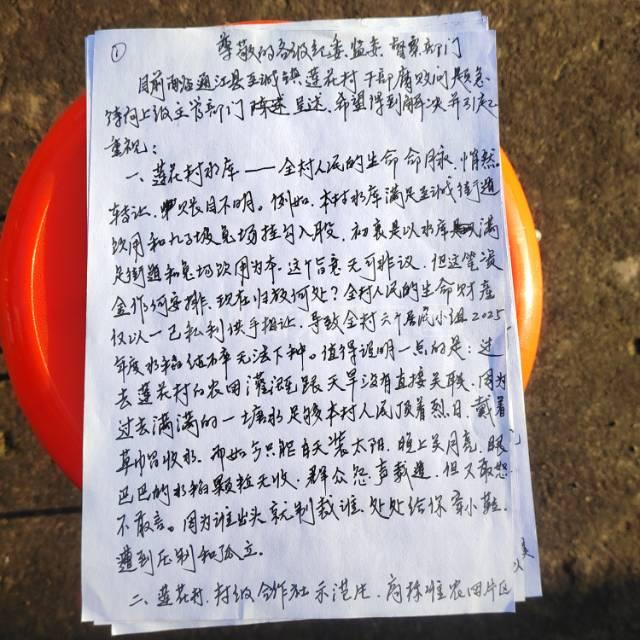 ①
尊敬的高级纪委、监委、督察部门
目前面临通江县至诚镇莲花村干部腐败问题急
待向上级主管部门陈述呈述,希望得到解决并引起
重视:
一、莲花村水库——全村人民的生命命脉,悄然
转让,账目不明。例如,本村水库满足至诚街道
饮用和九子坡兔场挂勾入股,初衷是以水库满
足街道和兔场饮用为本,这个旨意无可非议,但这笔资
金作何安排,现在归放何处?全村人民的生命财产
仅以一己私利拱手相让,导致全村六个居民小组2025
年度水稻无法下种。值得说明一点的是:过
去莲花村的农田灌溉跟天旱没有直接关联,因为
过去满满的一塘水足够本村人民顶着烈日,戴着
草帽收水,而如今只能白天装太阳,晚上关月亮,眼
巴巴的水稻颗粒无收,群众怨声载道,但又敢怒
不敢言。因为谁出头就制裁谁,处处给你穿小鞋,
遭到压制和孤立。
二、莲花村,村级合作社示范片,农田片区